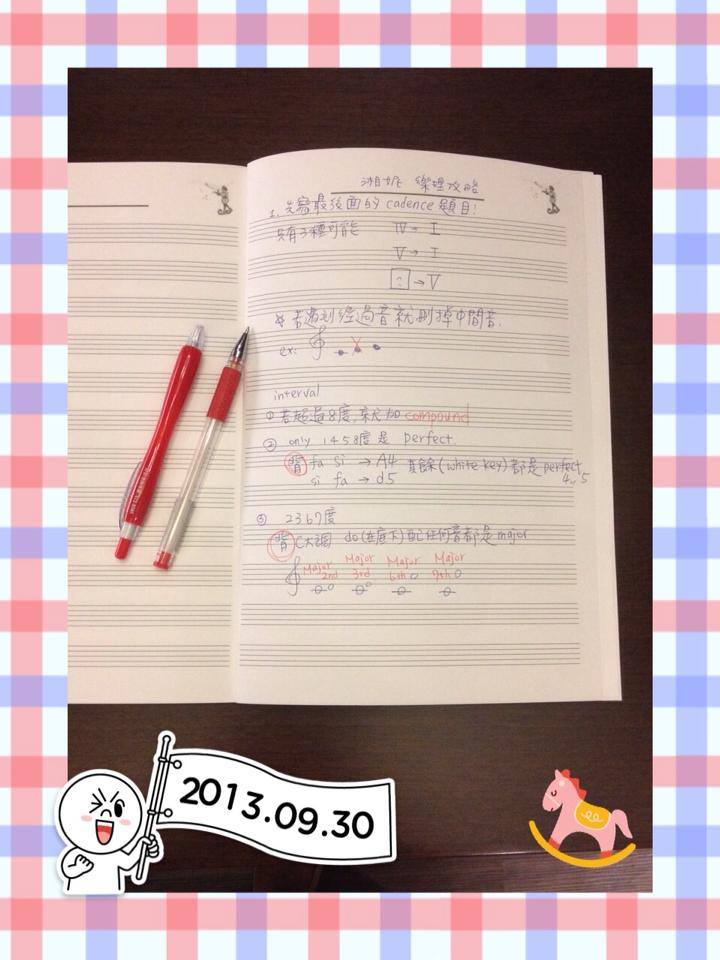 湘妮 樂理攻略
1. 先寫最後面的 cadence 題目:
只有3種可能 IV → I
V → I
? → V
☆ 若遇到經過音就刪掉中間音.
ex:
interval
① 若超過8度,就加 compound
② only 1 4 5 8度是 perfect
背 fa si → A4 其餘(white key)都是 perfect
si fa → d5 4, 5
③ 2 3 6 7度
背 C大調 do(在底下)配任何音都是major
Major Major Major Major
2nd 3rd 6th
2013.09.30